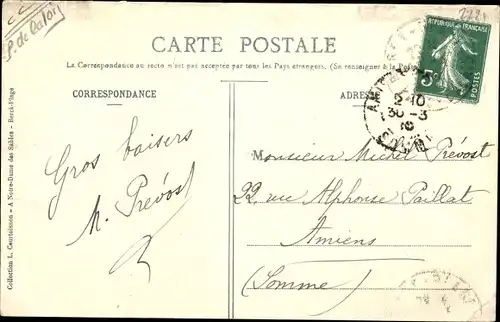 P. de Calais
CARTE POSTALE
La Correspondance au recto n'est pas acceptée par tous les Pays étrangers. (Se renseigner à la Poste)
CORRESPONDANCE
ADRESSE
REPUBLIQUE FRANÇAISE
5
POSTES
AMIENS
2-10
30-3
10
Gros baisers
M. Prévost
Monsieur Michel Prévost
22, rue Alphonse Paillat
Amiens
(Somme)
Collection L. Courtoisnon - A Notre-Dame des Sables - Berck-Plage